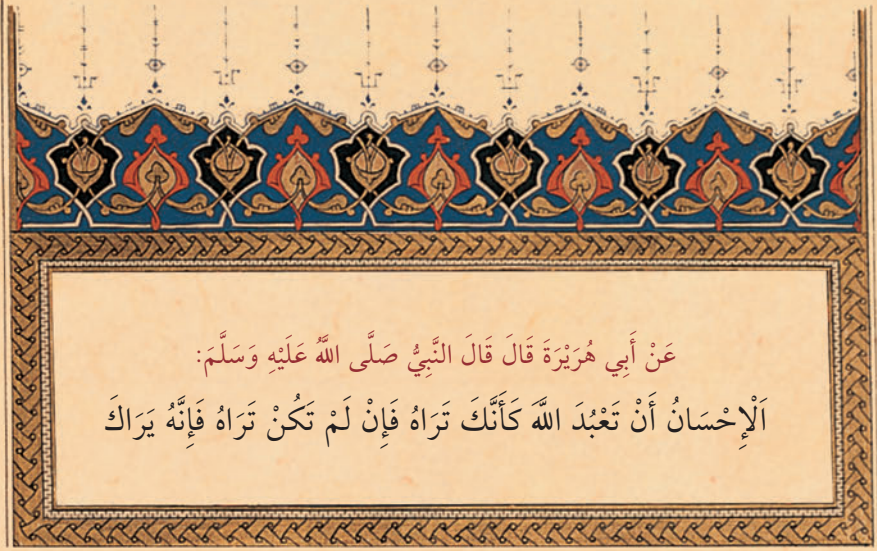 عَنْ أَبِي هُرَيْرَةَ قَالَ قَالَ النَّبِيُّ صَلَّى اللَّهُ عَلَيْهِ وَسَلَّمَ:
اَلْإِحْسَانُ أَنْ تَعْبُدَ اللَّهَ كَأَنَّكَ تَرَاهُ فَإِنْ لَمْ تَكُنْ تَرَاهُ فَإِنَّهُ يَرَاكَ